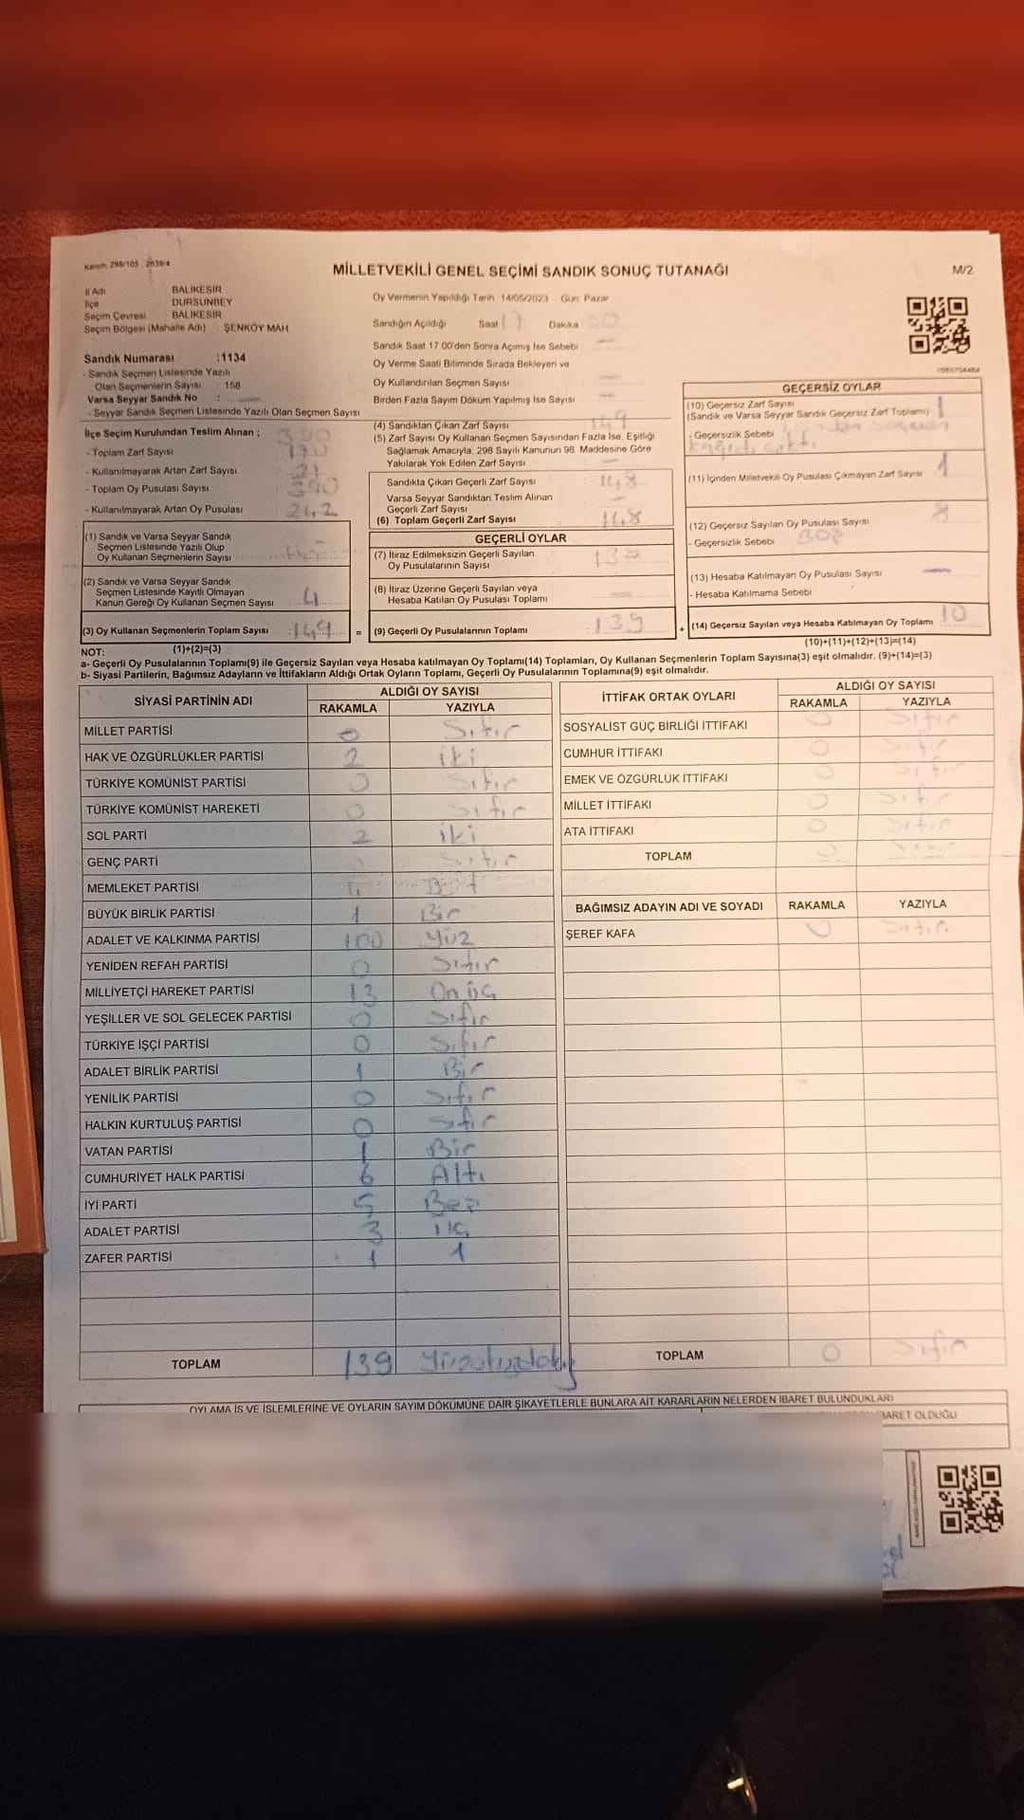 Kanun, 298/105
MİLLETVEKİLİ GENEL SEÇİMİ SANDIK SONUÇ TUTANAĞI
M/2
İl Adı BALIKESİR
İlçe DURSUNBEY
Seçim Çevresi BALIKESİR
Seçim Bölgesi (Mahalle Adı) : ŞENKÖY MAH
Sandık Numarası :1134
- Sandık Seçmen Listesinde Yazılı
Olan Seçmenlerin Sayısı : 158
Varsa Seyyar Sandık No :
- Seyyar Sandık Seçmen Listesinde Yazılı Olan Seçmen Sayısı
Oy Vermenin Yapıldığı Tarih 14/05/2023 Gün: Pazar
Sandığın Açıldığı Saat 17 Dakika
Sandık Saat 17.00'den Sonra Açılmış İse Sebebi
Oy Verme Saati Bitiminde Sırada Bekleyen ve
Oy Kullandırılan Seçmen Sayısı
Birden Fazla Sayım Döküm Yapılmış İse Sayısı
İlçe Seçim Kurulundan Teslim Alınan ;
- Toplam Zarf Sayısı
- Kullanılmayarak Artan Zarf Sayısı
- Toplam Oy Pusulası Sayısı
- Kullanılmayarak Artan Oy Pusulası 242
(1) Sandık ve Varsa Seyyar Sandık
Seçmen Listesinde Yazılı Olup
Oy Kullanan Seçmenlerin Sayısı
(2) Sandık ve Varsa Seyyar Sandık
Seçmen Listesinde Kayıtlı Olmayan
Kanun Gereği Oy Kullanan Seçmen Sayısı 4
(3) Oy Kullanan Seçmenlerin Toplam Sayısı 149
(1)+(2)=(3)
(4) Sandıktan Çıkan Zarf Sayısı 149
(5) Zarf Sayısı Oy Kullanan Seçmen Sayısından Fazla İse, Eşitliği
Sağlamak Amacıyla, 298 Sayılı Kanunun 98. Maddesine Göre
Yakılarak Yok Edilen Zarf Sayısı
Sandıkta Çıkan Geçerli Zarf Sayısı 148
Varsa Seyyar Sandıktan Teslim Alınan
Geçerli Zarf Sayısı
(6) Toplam Geçerli Zarf Sayısı 148
GEÇERLİ OYLAR
(7) İtiraz Edilmeksizin Geçerli Sayılan
Oy Pusulalarının Sayısı
(8) İtiraz Üzerine Geçerli Sayılan veya
Hesaba Katılan Oy Pusulası Toplamı
= (9) Geçerli Oy Pusulalarının Toplamı 139
GEÇERSİZ OYLAR
(10) Geçersiz Zarf Sayısı 1
(Sandık ve Varsa Seyyar Sandık Geçersiz Zarf Toplamı)
- Geçersizlik Sebebi
(11) İçinden Milletvekili Oy Pusulası Çıkmayan Zarf Sayısı 1
(12) Geçersiz Sayılan Oy Pusulası Sayısı 8
- Geçersizlik Sebebi BOŞ
(13) Hesaba Katılmayan Oy Pusulası Sayısı —
- Hesaba Katılmama Sebebi
+ (14) Geçersiz Sayılan veya Hesaba Katılmayan Oy Toplamı 10
(10)+(11)+(12)+(13)=(14)
NOT:
a- Geçerli Oy Pusulalarının Toplamı(9) ile Geçersiz Sayılan veya Hesaba katılmayan Oy Toplamı(14) Toplamları, Oy Kullanan Seçmenlerin Toplam Sayısına(3) eşit olmalıdır. (9)+(14)=(3)
b- Siyasi Partilerin, Bağımsız Adayların ve İttifakların Aldığı Ortak Oyların Toplamı, Geçerli Oy Pusulalarının Toplamına(9) eşit olmalıdır.
SİYASİ PARTİNİN ADI ALDIĞI OY SAYISI
RAKAMLA YAZIYLA
MİLLET PARTİSİ 0 Sıfır
HAK VE ÖZGÜRLÜKLER PARTİSİ 2 iki
TÜRKİYE KOMÜNİST PARTİSİ 0 Sıfır
TÜRKİYE KOMÜNİST HAREKETİ 0 Sıfır
SOL PARTİ 2 iki
GENÇ PARTİ Sıfır
MEMLEKET PARTİSİ
BÜYÜK BİRLİK PARTİSİ 1 Bir
ADALET VE KALKINMA PARTİSİ 100 Yüz
YENİDEN REFAH PARTİSİ 0 Sıfır
MİLLİYETÇİ HAREKET PARTİSİ 13 On üç
YEŞİLLER VE SOL GELECEK PARTİSİ 0 Sıfır
TÜRKİYE İŞÇİ PARTİSİ 0 Sıfır
ADALET BİRLİK PARTİSİ 1 Bir
YENİLİK PARTİSİ 0 Sıfır
HALKIN KURTULUŞ PARTİSİ 0 Sıfır
VATAN PARTİSİ 1 Bir
CUMHURİYET HALK PARTİSİ 6 Altı
İYİ PARTİ 5 Beş
ADALET PARTİSİ 3 üç
ZAFER PARTİSİ 1 1
TOPLAM 139 Yüzotuzdokuz
İTTİFAK ORTAK OYLARI ALDIĞI OY SAYISI
RAKAMLA YAZIYLA
SOSYALİST GÜÇ BİRLİĞİ İTTİFAKI 0 Sıfır
CUMHUR İTTİFAKI 0 Sıfır
EMEK VE ÖZGÜRLÜK İTTİFAKI 0 Sıfır
MİLLET İTTİFAKI 0 Sıfır
ATA İTTİFAKI 0 Sıfır
TOPLAM 0
BAĞIMSIZ ADAYIN ADI VE SOYADI RAKAMLA YAZIYLA
ŞEREF KAFA 0 Sıfır
TOPLAM 0 Sıfır
OYLAMA İŞ VE İŞLEMLERİNE VE OYLARIN SAYIM DÖKÜMÜNE DAİR ŞİKAYETLERLE BUNLARA AİT KARARLARIN NELERDEN İBARET BULUNDUKLARI
BARET OLDUĞU